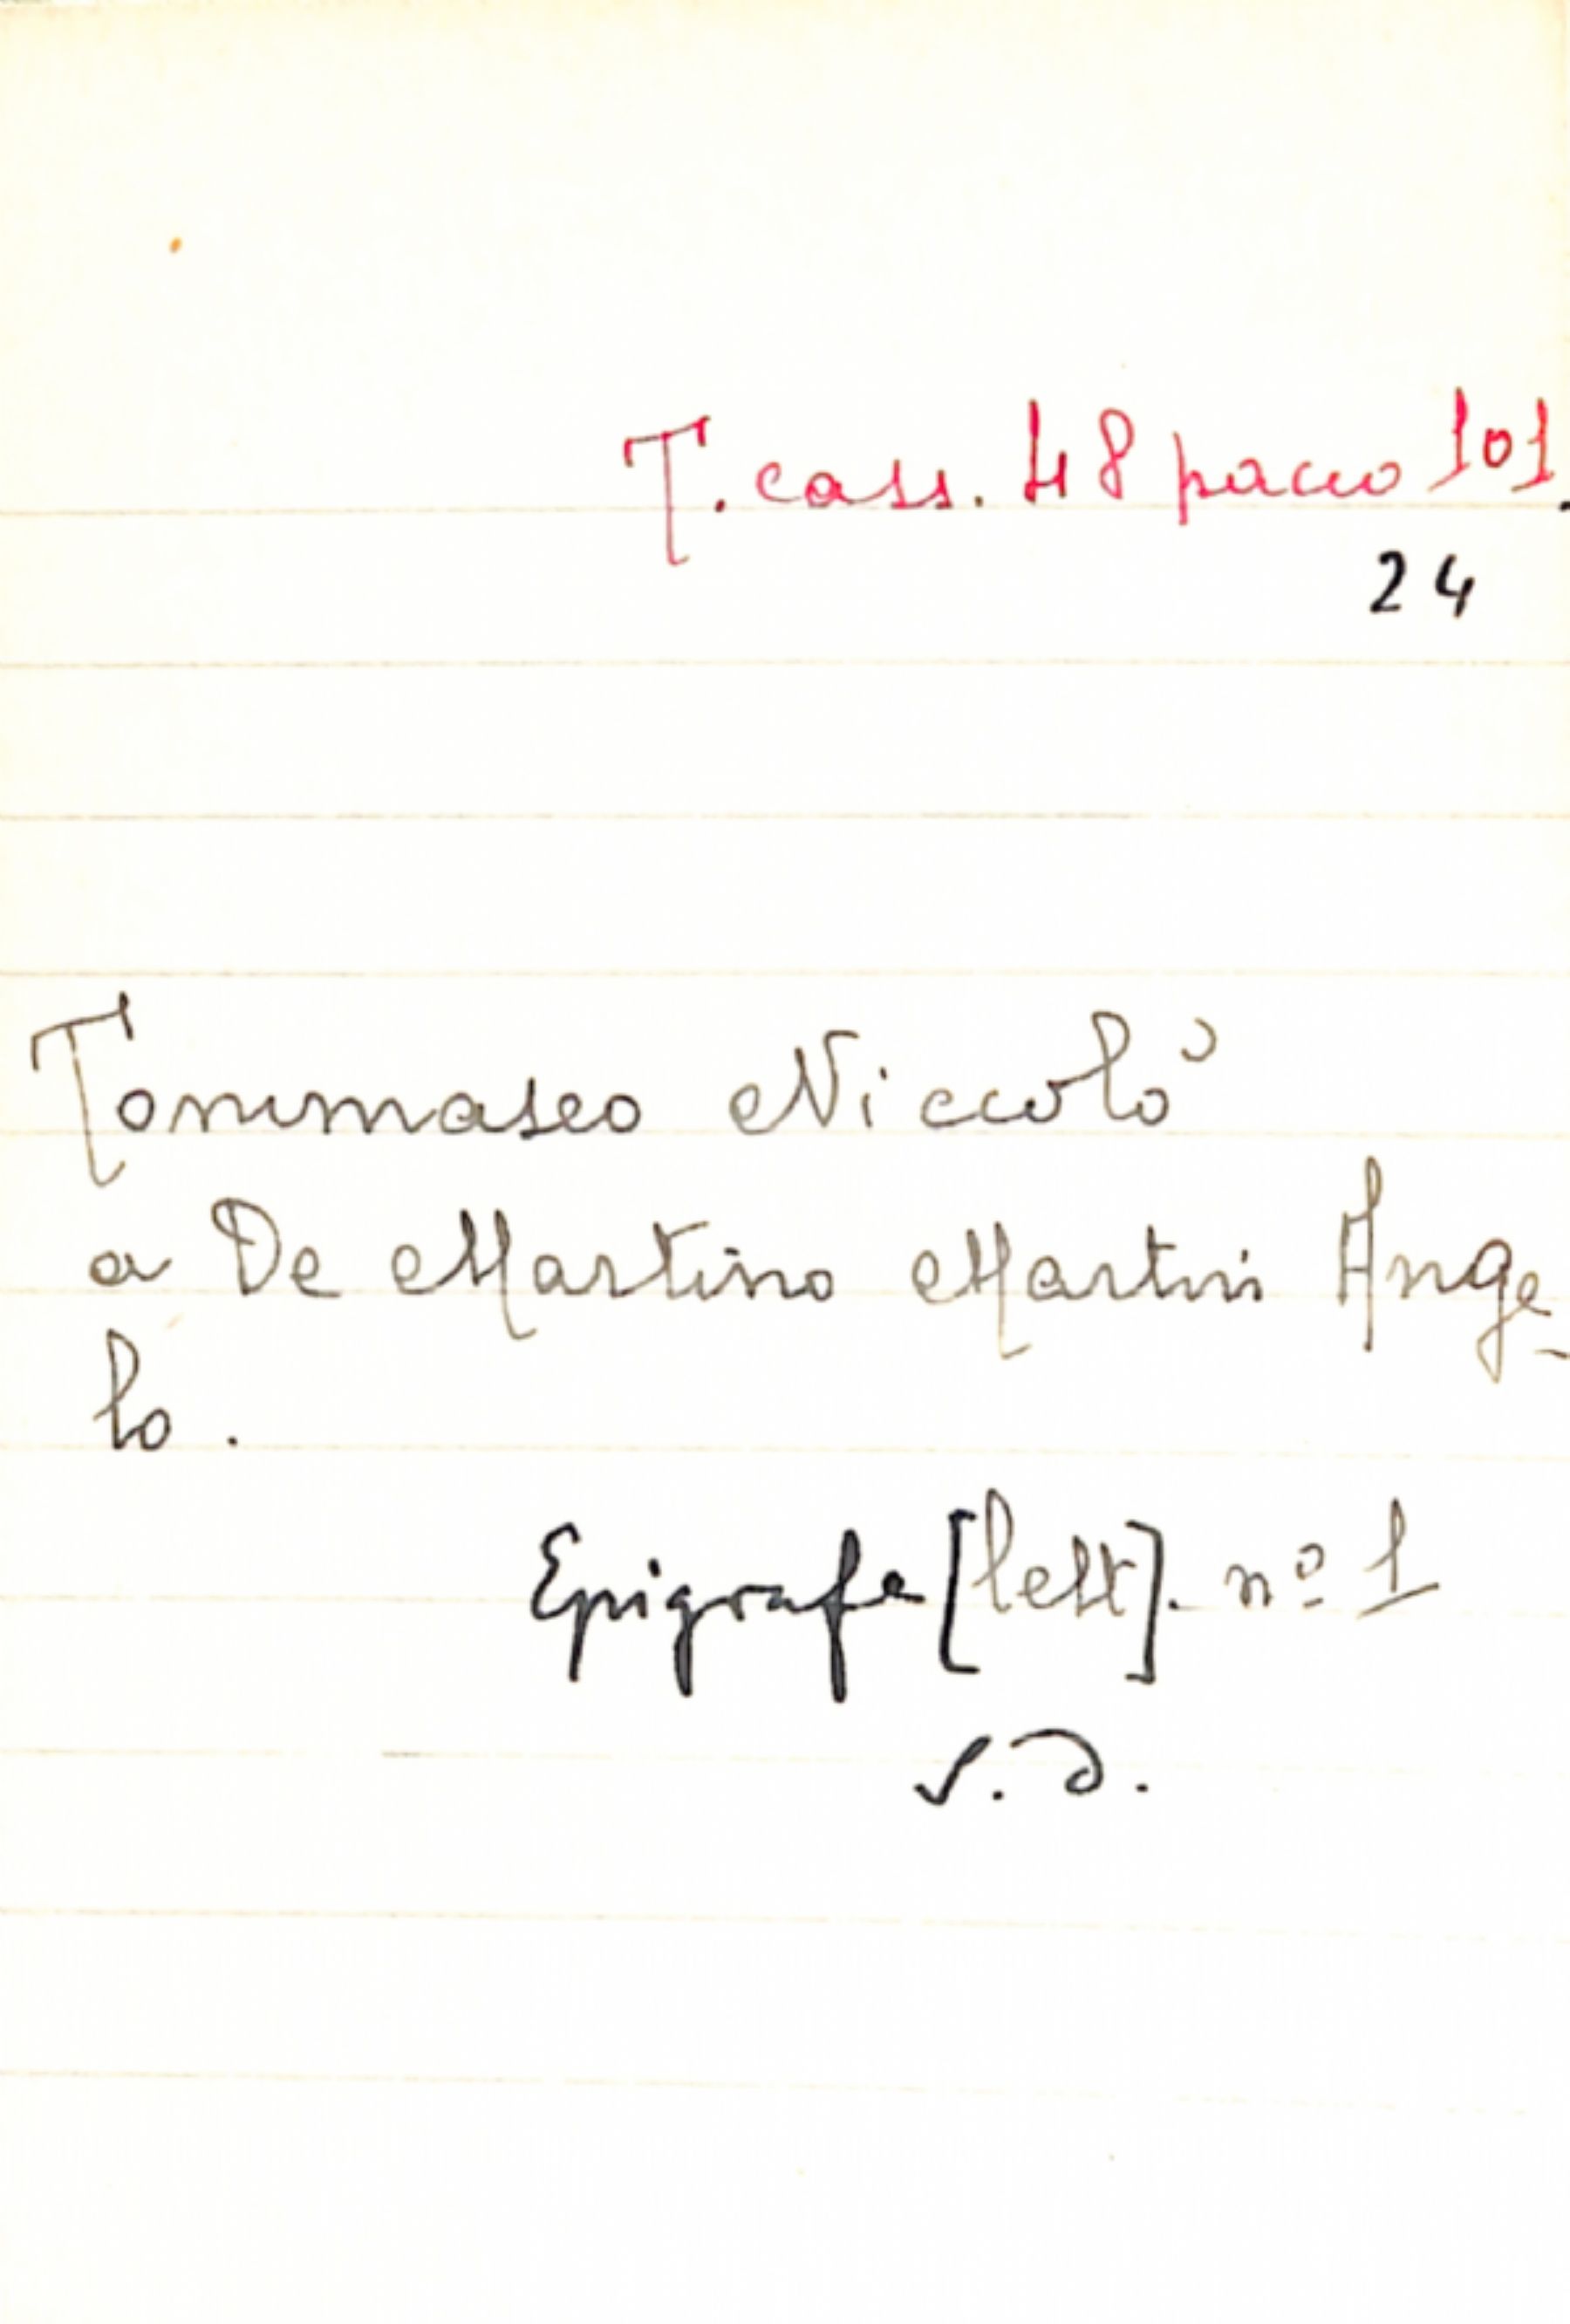 T. cass. 48 pacco 101.
24
Tommaseo Niccolò
a De Martino Martin Ange-
lo.
Epigrafe [lett]. nº 1
s.d.